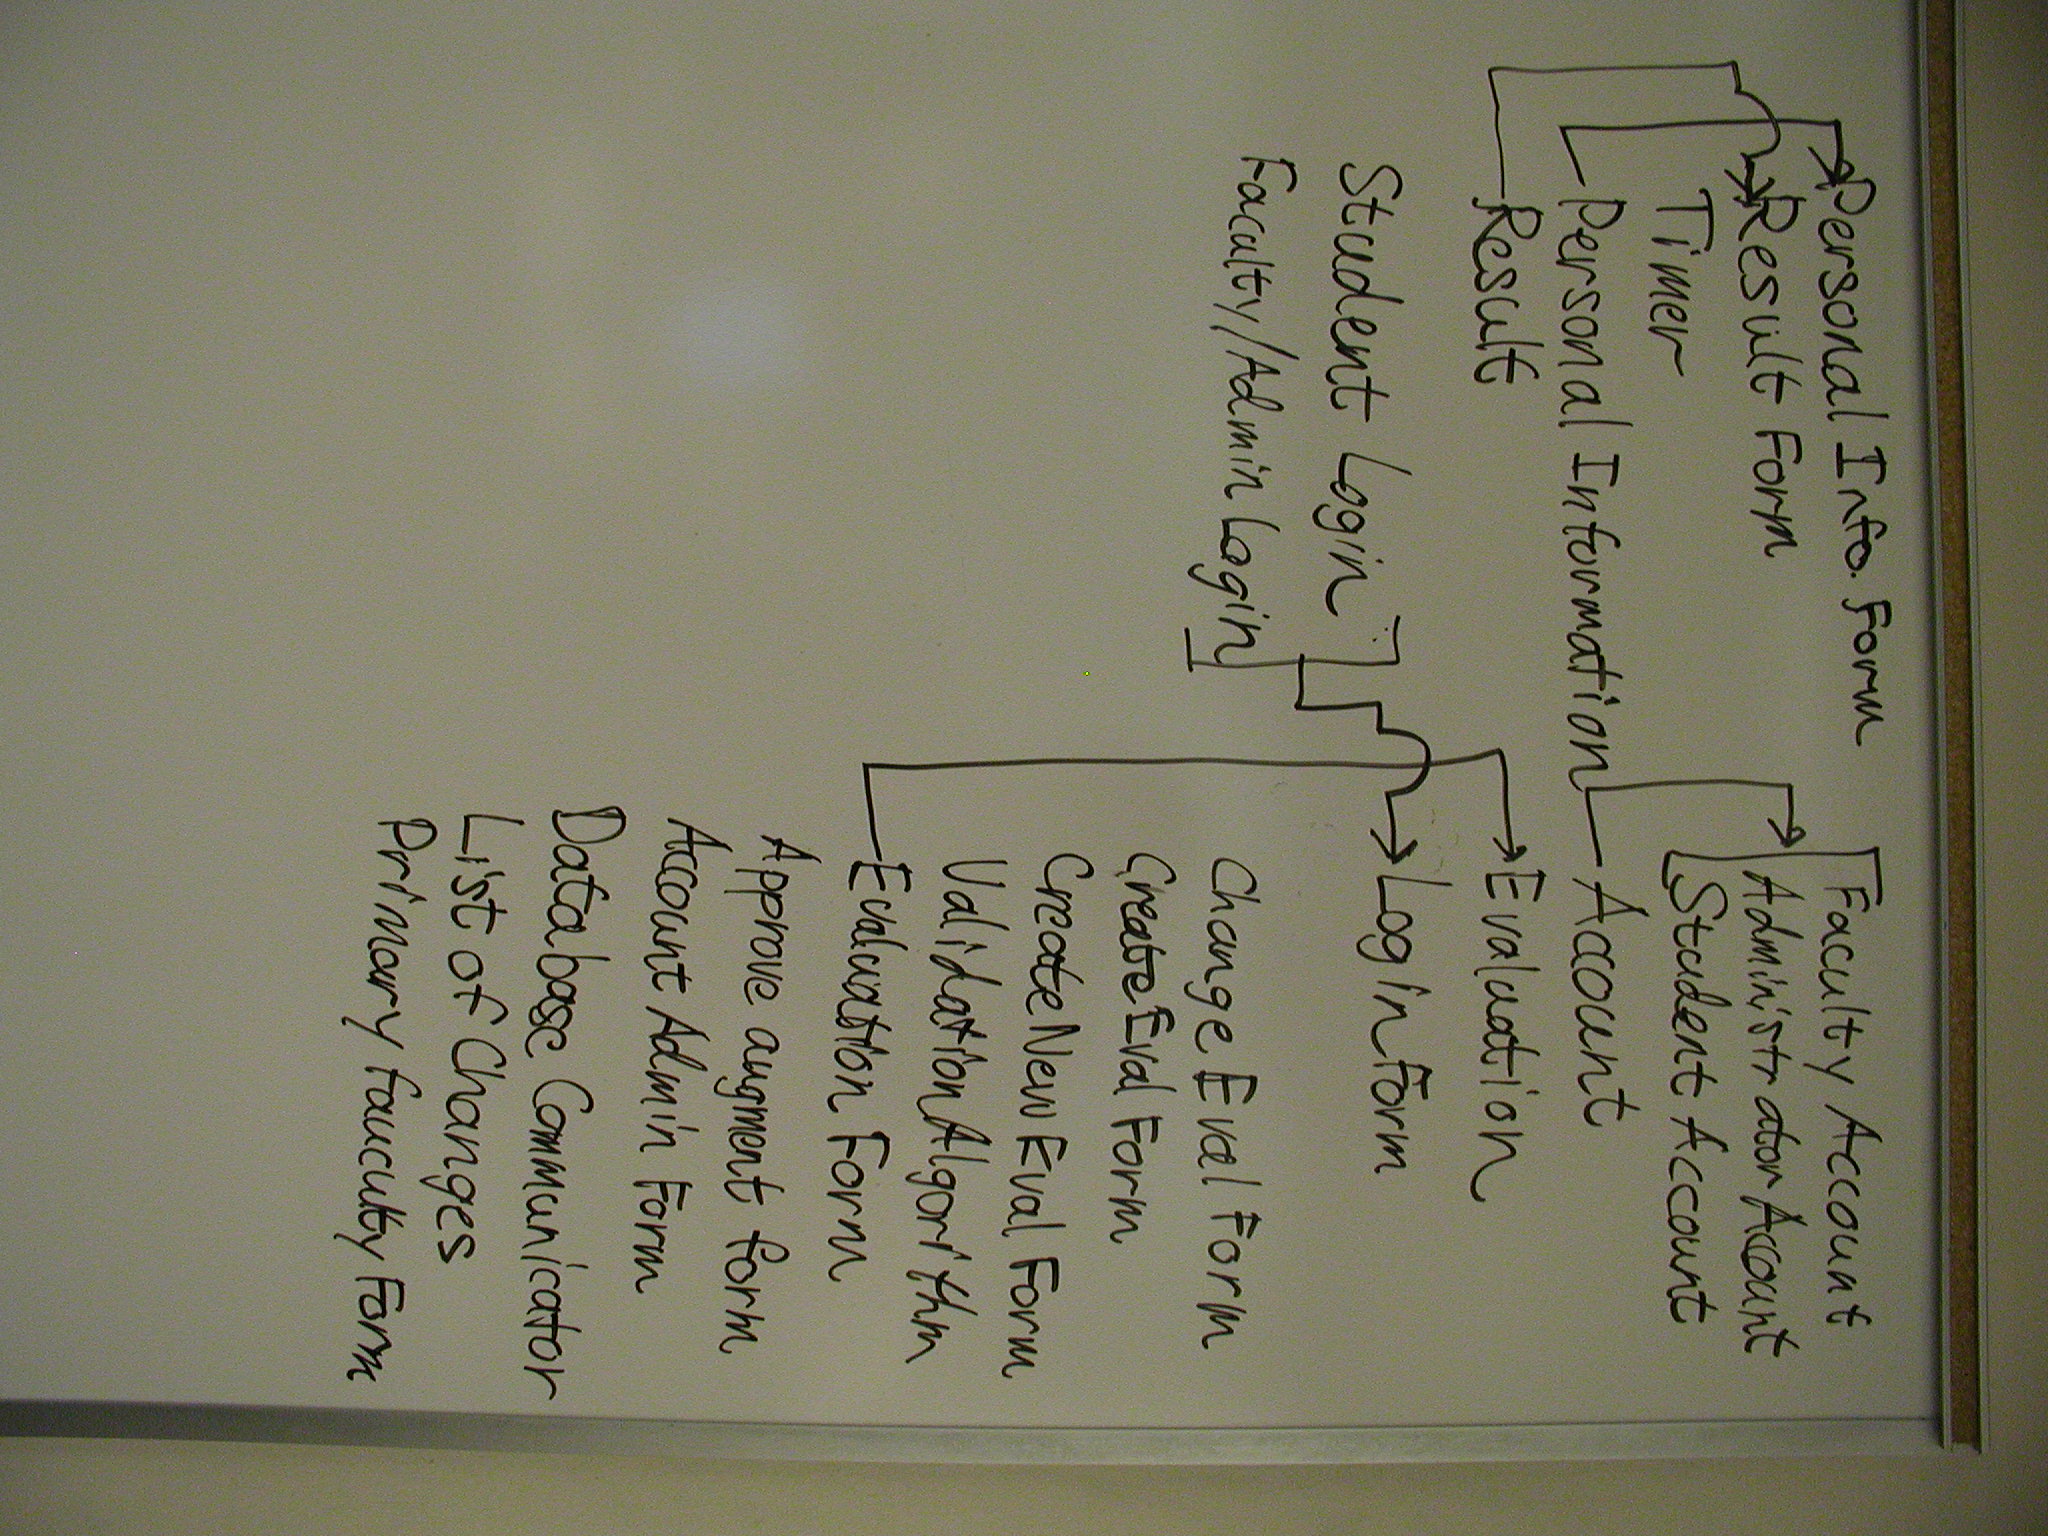 Personal Info. Form
Result Form
Timer
Personal Information
Result
Student Login
Faculty/Admin Login
Faculty Account
Administrator Account
Student Account
Account
Evaluation
Login Form
Change Eval Form
Create Eval Form
Create New Eval Form
Validation Algorithm
Evaluation Form
Approve augment form
Account Admin Form
Database Communicator
List of Changes
Primary faucuty Form